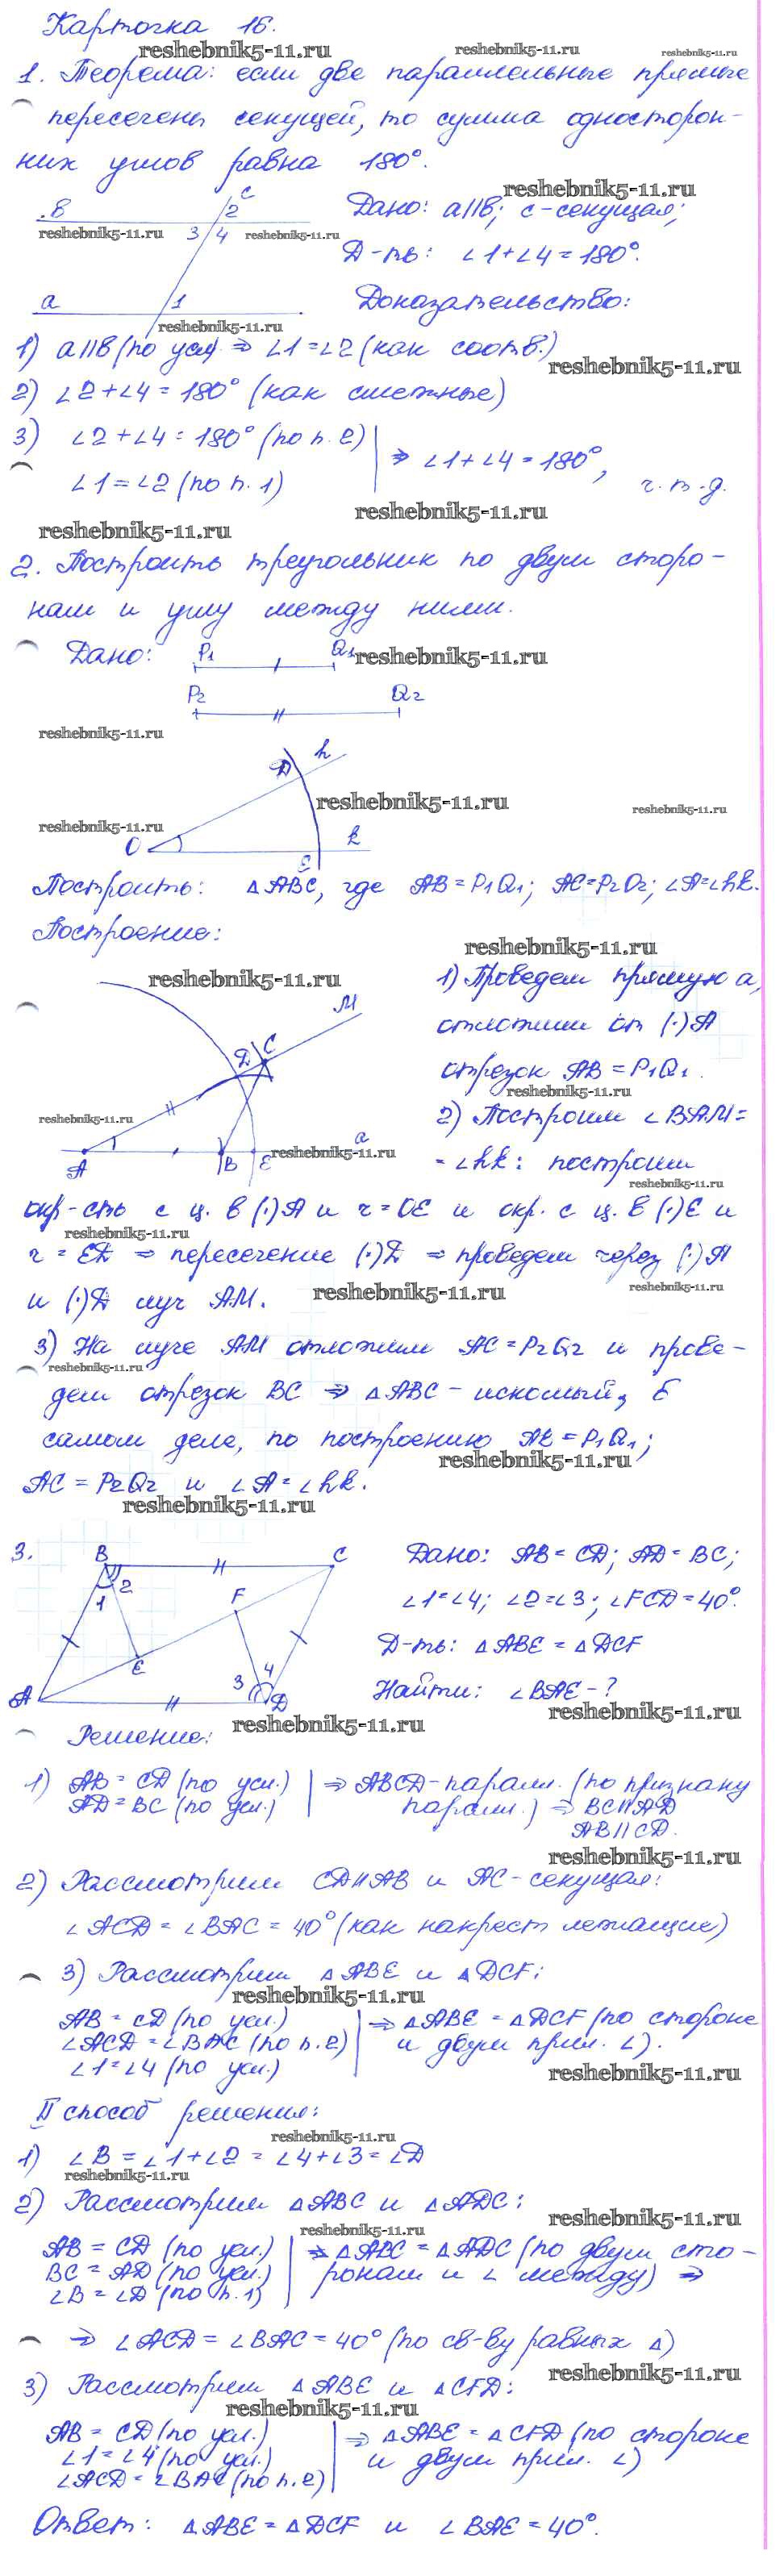 Карточка 16.
reshebnik5-11.ru reshebnik5-11.ru reshebnik5-11.ru
1. Теорема: если две параллельные прямые
пересечены секущей, то сумма односторон-
них углов равна 180°.
reshebnik5-11.ru
в с 2 Дано: a||в; с-секущая;
reshebnik5-11.ru 3 4 reshebnik5-11.ru
Д-ть: ∠1+∠4=180°.
a 1 Доказательство:
reshebnik5-11.ru
1) a||в (по усл) ⇒ ∠1=∠2 (как соотв.)
reshebnik5-11.ru
2) ∠2+∠4=180° (как смежные)
3) ∠2+∠4=180° (по п.2)
⇒ ∠1+∠4=180°,
∠1=∠2 (по п.1) ч.т.д.
reshebnik5-11.ru
reshebnik5-11.ru
2. Построить треугольник по двум сторо-
нам и углу между ними.
Дано: P₁ Q₁ reshebnik5-11.ru
P₂ Q₂
reshebnik5-11.ru
D h
reshebnik5-11.ru reshebnik5-11.ru
reshebnik5-11.ru
O E k
Построить: △ABC, где AB=P₁Q₁; AC=P₂Q₂; ∠A=∠hk.
Построение:
reshebnik5-11.ru
reshebnik5-11.ru
1) Проведем прямую a,
M
отложим от (·)A
D C
отрезок AB=P₁Q₁.
reshebnik5-11.ru
reshebnik5-11.ru
2) Построим ∠BAM=
a
A B E reshebnik5-11.ru
=∠hk: построим
reshebnik5-11.ru
окр-сть с ц. в (·)A и r=OE и окр. с ц. в (·)E и
reshebnik5-11.ru
r=ED ⇒ пересечение (·)D ⇒ проведем через (·)A
и (·)D луч AM.
reshebnik5-11.ru reshebnik5-11.ru
3) На луче AM отложим AC=P₂Q₂ и прове-
reshebnik5-11.ru
дем отрезок BC ⇒ △ABC-искомый, в
самом деле, по построению AB=P₁Q₁;
reshebnik5-11.ru
AC=P₂Q₂ и ∠A=∠hk.
reshebnik5-11.ru
3. B C Дано: AB=CD; AD=BC;
1 2 F ∠1=∠4; ∠2=∠3; ∠FCD=40°.
E Д-ть: △ABE=△DCF
A 3 4 D Найти: ∠BAE-?
reshebnik5-11.ru reshebnik5-11.ru
Решение:
1) AB=CD (по усл.) ⇒ ABCD-паралл. (по признаку
AD=BC (по усл.) паралл.) ⇒ BC||AD
AB||CD.
reshebnik5-11.ru
2) Рассмотрим CD||AB и AC-секущая:
∠ACD=∠BAC=40° (как накрест лежащие)
3) Рассмотрим △ABE и △DCF:
reshebnik5-11.ru
AB=CD (по усл.) ⇒ △ABE=△DCF (по стороне
∠ACD=∠BAC (по п.2) и двум прил. ∠).
∠1=∠4 (по усл.)
reshebnik5-11.ru
II способ решения:
reshebnik5-11.ru
1) ∠B=∠1+∠2=∠4+∠3=∠D
reshebnik5-11.ru
2) Рассмотрим △ABC и △ADC:
reshebnik5-11.ru
reshebnik5-11.ru
AB=CD (по усл.) ⇒ △ABC=△ADC (по двум сто-
BC=AD (по усл.) ронам и ∠ между) ⇒
∠B=∠D (по п.1)
⇒ ∠ACD=∠BAC=40° (по св-ву равных △)
reshebnik5-11.ru
3) Рассмотрим △ABE и △CFD:
reshebnik5-11.ru
AB=CD (по усл.) ⇒ △ABE=△CFD (по стороне
∠1=∠4 (по усл.) и двум прил. ∠)
∠ACD=∠BAC (по п.2)
Ответ: △ABE=△DCF и ∠BAE=40°.